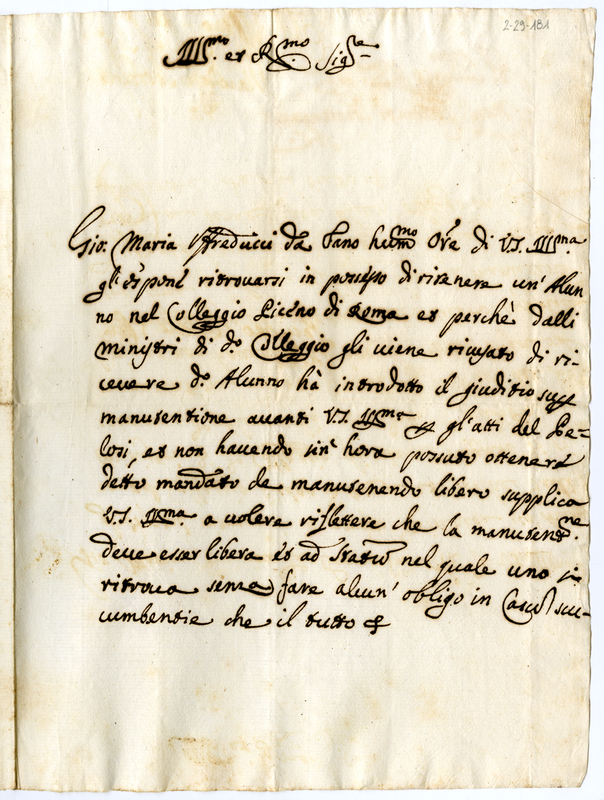 2-29-181
Ill.mo et R.mo Sig.re
Gio: Maria Uffreducci da Fano hum.mo Ore di V.S. Ill.ma
gl'espone ritrovarsi in possesso di ritenere un' Alun
no nel Colleggio Piceno di Roma et perchè dalli
ministri di d.o Colleggio gli viene ricusato di ri-
cevere d.o Alunno hà introdotto il giuditio sup.
manutentione avanti V.S. Ill.ma gl'atti del Pe=
losi, et non havendo sin' hora possuto ottenere
detto mandato de manutenendo libero supplica
V.S. Ill.ma a volere riflettere che la manuten.ne
deve esser libera et ad statum nel quale uno si
ritrova senza fare alcun' obligo in Casu suc-
cumbentie che il tutto